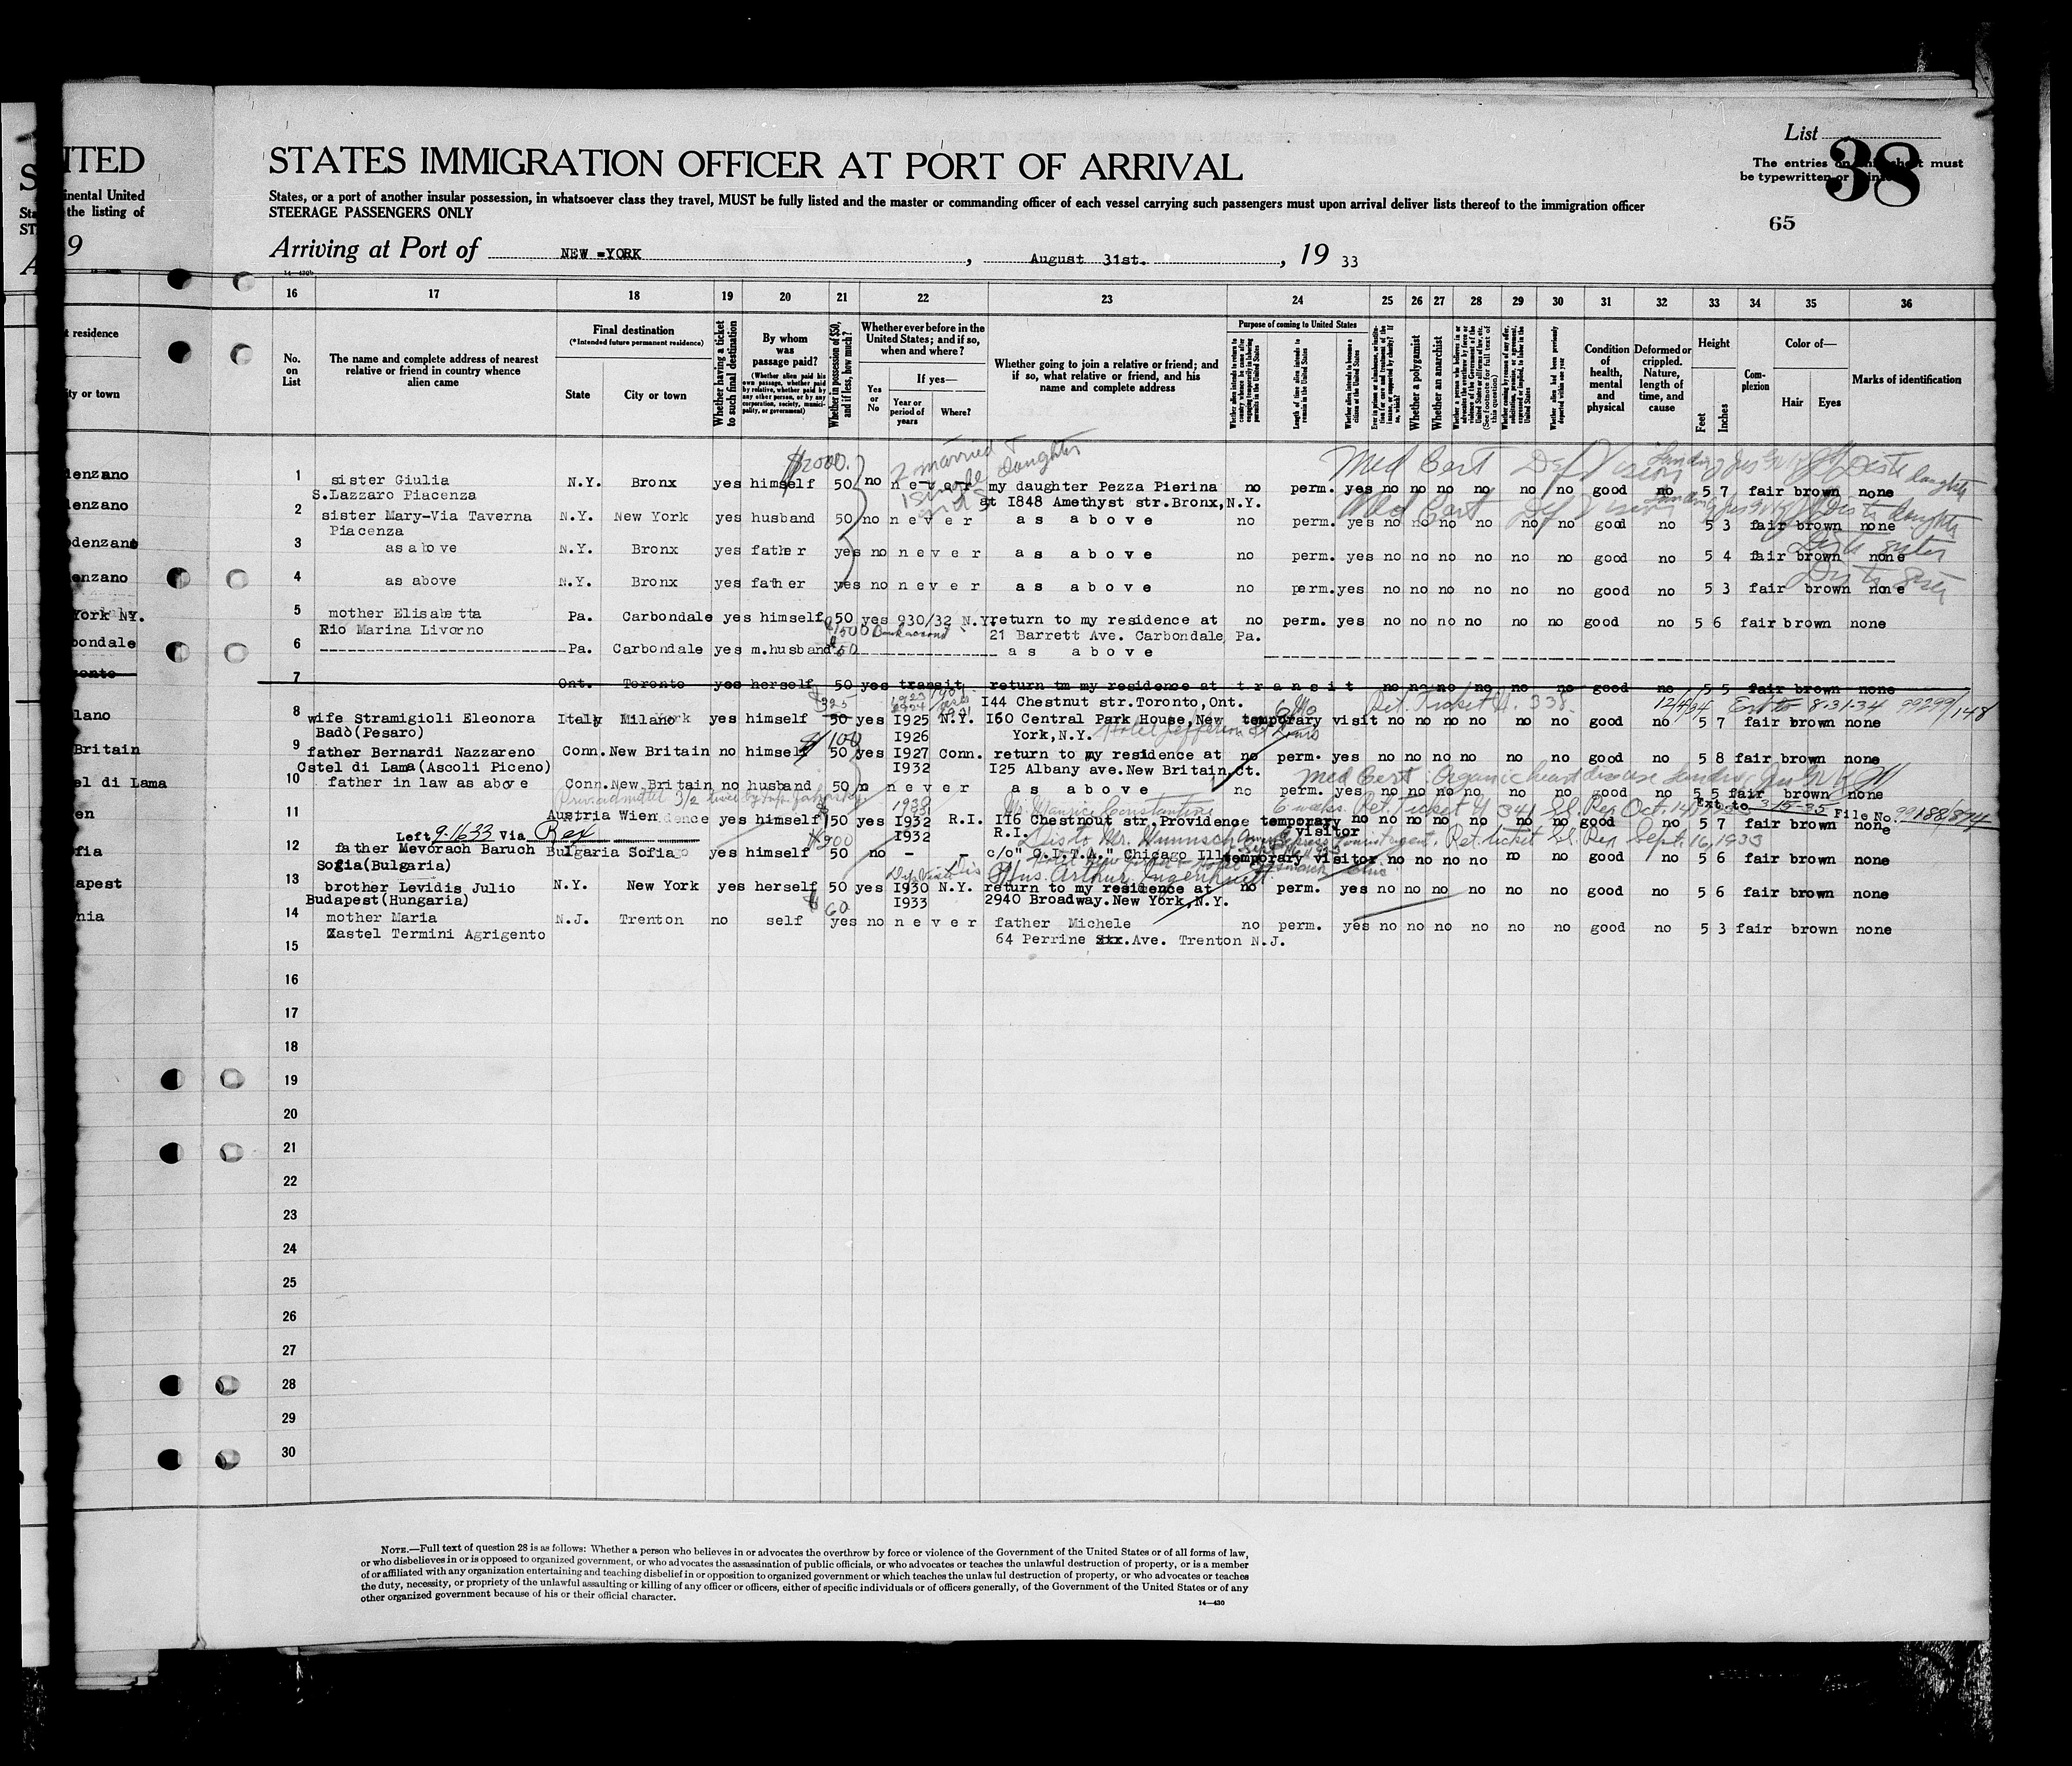 List
38
The entries on this sheet must
be typewritten or printed
65
ITED
STATES IMMIGRATION OFFICER AT PORT OF ARRIVAL
inental United
the listing of
States, or a port of another insular possession, in whatsoever class they travel, MUST be fully listed and the master or commanding officer of each vessel carrying such passengers must upon arrival deliver lists thereof to the immigration officer
STEERAGE PASSENGERS ONLY
9
Arriving at Port of NEW=YORK, August 31st., 19 33
14—430b
16 17 18 19 20 21 22 23 24 25 26 27 28 29 30 31 32 33 34 35 36
t residence
ty or town
No. on List
The name and complete address of nearest relative or friend in country whence alien came
Final destination
(*Intended future permanent residence)
State
City or town
Whether having a ticket to such final destination
By whom was passage paid?
(Whether alien paid his own passage, whether paid by relative, whether paid by any other person, or by any corporation, society, municipality, or government)
Whether in possession of $50, and if less, how much?
Whether ever before in the United States; and if so, when and where?
Yes or No
If yes—
Year or period of years
Where?
Whether going to join a relative or friend; and if so, what relative or friend, and his name and complete address
Purpose of coming to United States
Length of time alien intends to remain in the United States
Whether alien intends to become a citizen of the United States
Whether a polygamist
Whether an anarchist
Whether alien had been previously deported within one year
Condition of health, mental and physical
Deformed or crippled. Nature, length of time, and cause
Height
Feet
Inches
Complexion
Color of—
Hair
Eyes
Marks of identification
$2000.
2 married
1 single daughter
Med Cert Def Vision
denzano 1 sister Giulia N.Y. Bronx yes himself 50 no never my daughter Pezza Pierina no perm. yes no no no no no no good no 5 7 fair brown none
S.Lazzaro Piacenza at I848 Amethyst str.Bronx,N.Y.
Med Cert Def Vision
denzano 2 sister Mary-Via Taverna N.Y. New York yes husband 50 no never as above no perm. yes no no no no no no good no 5 3 fair brown none
Piacenza
odenzano 3 as above N.Y. Bronx yes father yes no never as above no perm. yes no no no no no no good no 5 4 fair brown none
denzano 4 as above N.Y. Bronx yes father yes no never as above no perm. yes no no no no no no good no 5 3 fair brown none
York NY. 5 mother Elisabetta Pa. Carbondale yes himself 50 yes 930/32 N.Y. return to my residence at no perm. yes no no no no no no good no 5 6 fair brown none
Rio Marina Livorno 21 Barrett Ave. Carbondale, Pa.
bondale 6 Pa. Carbondale yes m.husband 50 as above
onto 7 Ont. Toronto yes herself 50 yes transit return tm my residence at transit no no no no no no good no 5 5 fair brown none
I44 Chestnut str.Toronto,Ont.
6 Mo Ret. Ticket 338. 12/4/34 Ext to 8-31-34 99299/148
lano 8 wife Stramigioli Eleonora Italy Milano yes himself 50 yes I925 N.Y. I60 Central Park House,New temporary visit no no no no no no good no 5 7 fair brown none
Badò(Pesaro) I926 York,N.Y. Hotel Jefferson St Louis
Britain 9 father Bernardi Nazzareno Conn. New Britain no himself 50 yes I927 Conn. return to my residence at no perm. yes no no no no no no good no 5 8 fair brown none
Cstel di Lama(Ascoli Piceno) I932 I25 Albany ave.New Britain,Ct.
Med Cert: Organic heart disease
el di Lama 10 father in law as above Conn. New Britain no husband 50 n never as above no perm. yes no no no no no no good no 5 5 fair brown none
6 weeks. Ret. Ticket Ext. to 3-15-35
en 11 Austria Wien yes himself 50 yes I932 R.I. I16 Chestnout str.Providence temporary no no no no no no no good no 5 7 fair brown none File No. 99188/894
Left 9-1633 Via Rex I932 R.I. visitor
Ret. ticket Sept. 16, 1933
fia 12 father Mevorach Baruch Bulgaria Sofia yes himself 50 no - - c/o" O.I.T.A." Chicago Ill temporary visitor no no no no no no good no 5 6 fair brown none
Sofia(Bulgaria)
Mrs. Arthur
apest 13 brother Levidis Julio N.Y. New York yes herself 50 yes I930 N.Y. return to my residence at no perm. yes no no no no no no good no 5 6 fair brown none
Budapest(Hungaria) I933 2940 Broadway.New York,N.Y.
$60
nia 14 mother Maria N.J. Trenton no self yes no never father Michele no perm. yes no no no no no no good no 5 3 fair brown none
Kastel Termini Agrigento 64 Perrine Str.Ave. Trenton N.J.
15
16
17
18
19
20
21
22
23
24
25
26
27
28
29
30
NOTE.—Full text of question 28 is as follows: Whether a person who believes in or advocates the overthrow by force or violence of the Government of the United States or of all forms of law,
or who disbelieves in or is opposed to organized government, or who advocates the assassination of public officials, or who advocates or teaches the unlawful destruction of property, or is a member
of or affiliated with any organization entertaining and teaching disbelief in or opposition to organized government or which teaches the unlawful destruction of property, or who advocates or teaches
the duty, necessity, or propriety of the unlawful assaulting or killing of any officer or officers, either of specific individuals or of officers generally, of the Government of the United States or of any
other organized government because of his or their official character.
14—430